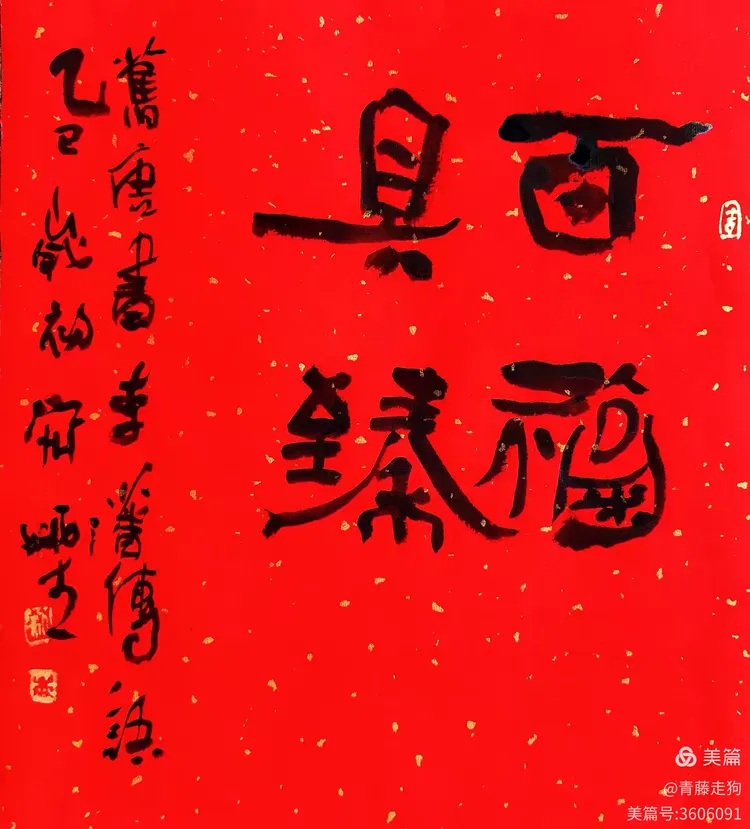 百福
具臻
舊唐書李藩傳語
乙巳歲初
美篇
@青藤走狗
美篇号:3606091